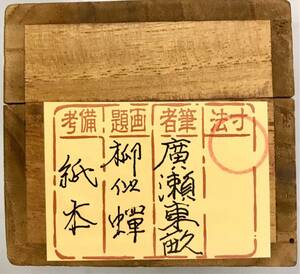 寸法
筆者
廣瀬東畝
画題
柳に蟬
備考
紙本